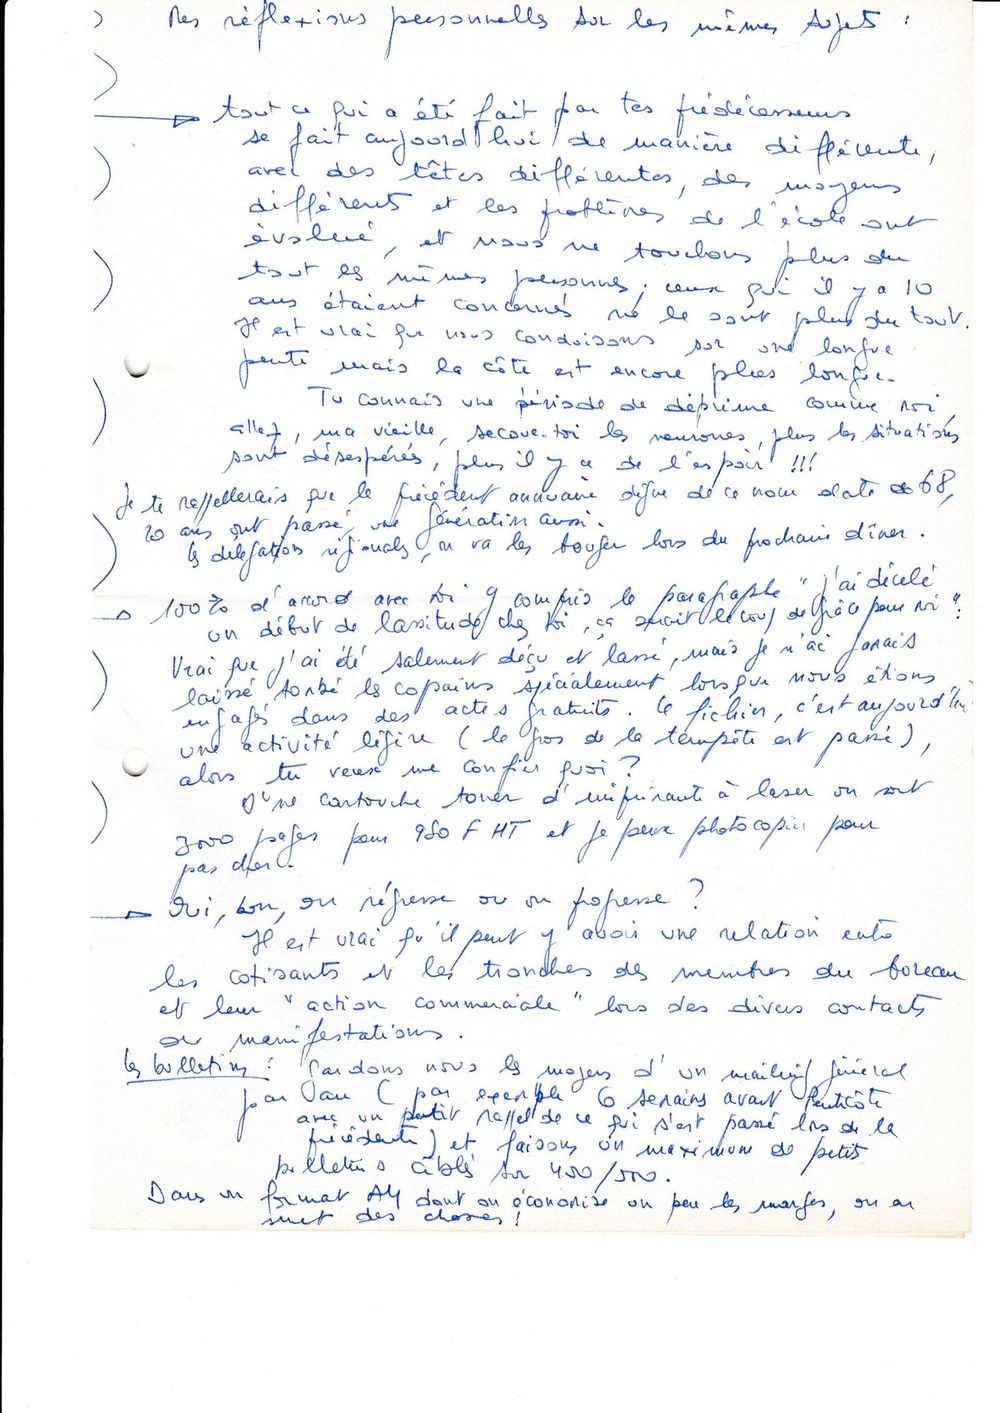 Mes réflexions personnelles sur les mêmes sujets :
tout ce qui a été fait par tes prédécesseurs
se fait aujourd'hui de manière différente,
avec des têtes différentes, des moyens
différents et les problèmes de l'école ont
évolué, et nous ne touchons plus du
tout les mêmes personnes ; ceux qui il y a 10
ans étaient concernés ne le sont plus du tout.
Il est vrai que nous conduisons sur une longue
pente mais la côte est encore plus longue.
Tu connais une période de déprime comme moi,
allez, ma vieille, secoue-toi les neurones, plus les situations
sont désespérés, plus il y a de l'espoir !!!
Je te rappellerais que le précédent annuaire digne de ce nom date de 68,
20 ans ont passé, une génération aussi.
les délégations régionales, on va les bouger lors du prochain dîner.
100% d'accord avec toi y compris le paragraphe "j'ai décelé
un début de lassitude chez toi, ça serait le coup de grâce pour moi".
Vrai que j'ai été salement déçu et lassé, mais je n'ai jamais
laissé tombé les copains spécialement lorsque nous étions
engagés dans des actes gratuits. Le fichier, c'est aujourd'hui
une activité légère (le gros de la tempête est passé),
alors tu veux me confier quoi ?
D'une cartouche toner d'imprimante à laser on sort
3000 pages pour 980 F HT et je peux photocopier pour
pas cher.
Oui, bon, on régresse ou on progresse ?
Il est vrai qu'il peut y avoir une relation entre
les cotisants et les tronches des membres du bureau
et leur "action commerciale" lors des divers contacts
ou manifestations.
les bulletins : Gardons nous les moyens d'un mailing général
par an (par exemple 6 semains avant Pentcôte
avec un petit rappel de ce qui s'est passé lors de la
précédente) et faisons un maximum de petit
bulletins câblés sur 450/500.
Dans un format A4 dont on économise un peu les marges, on en
met des choses !